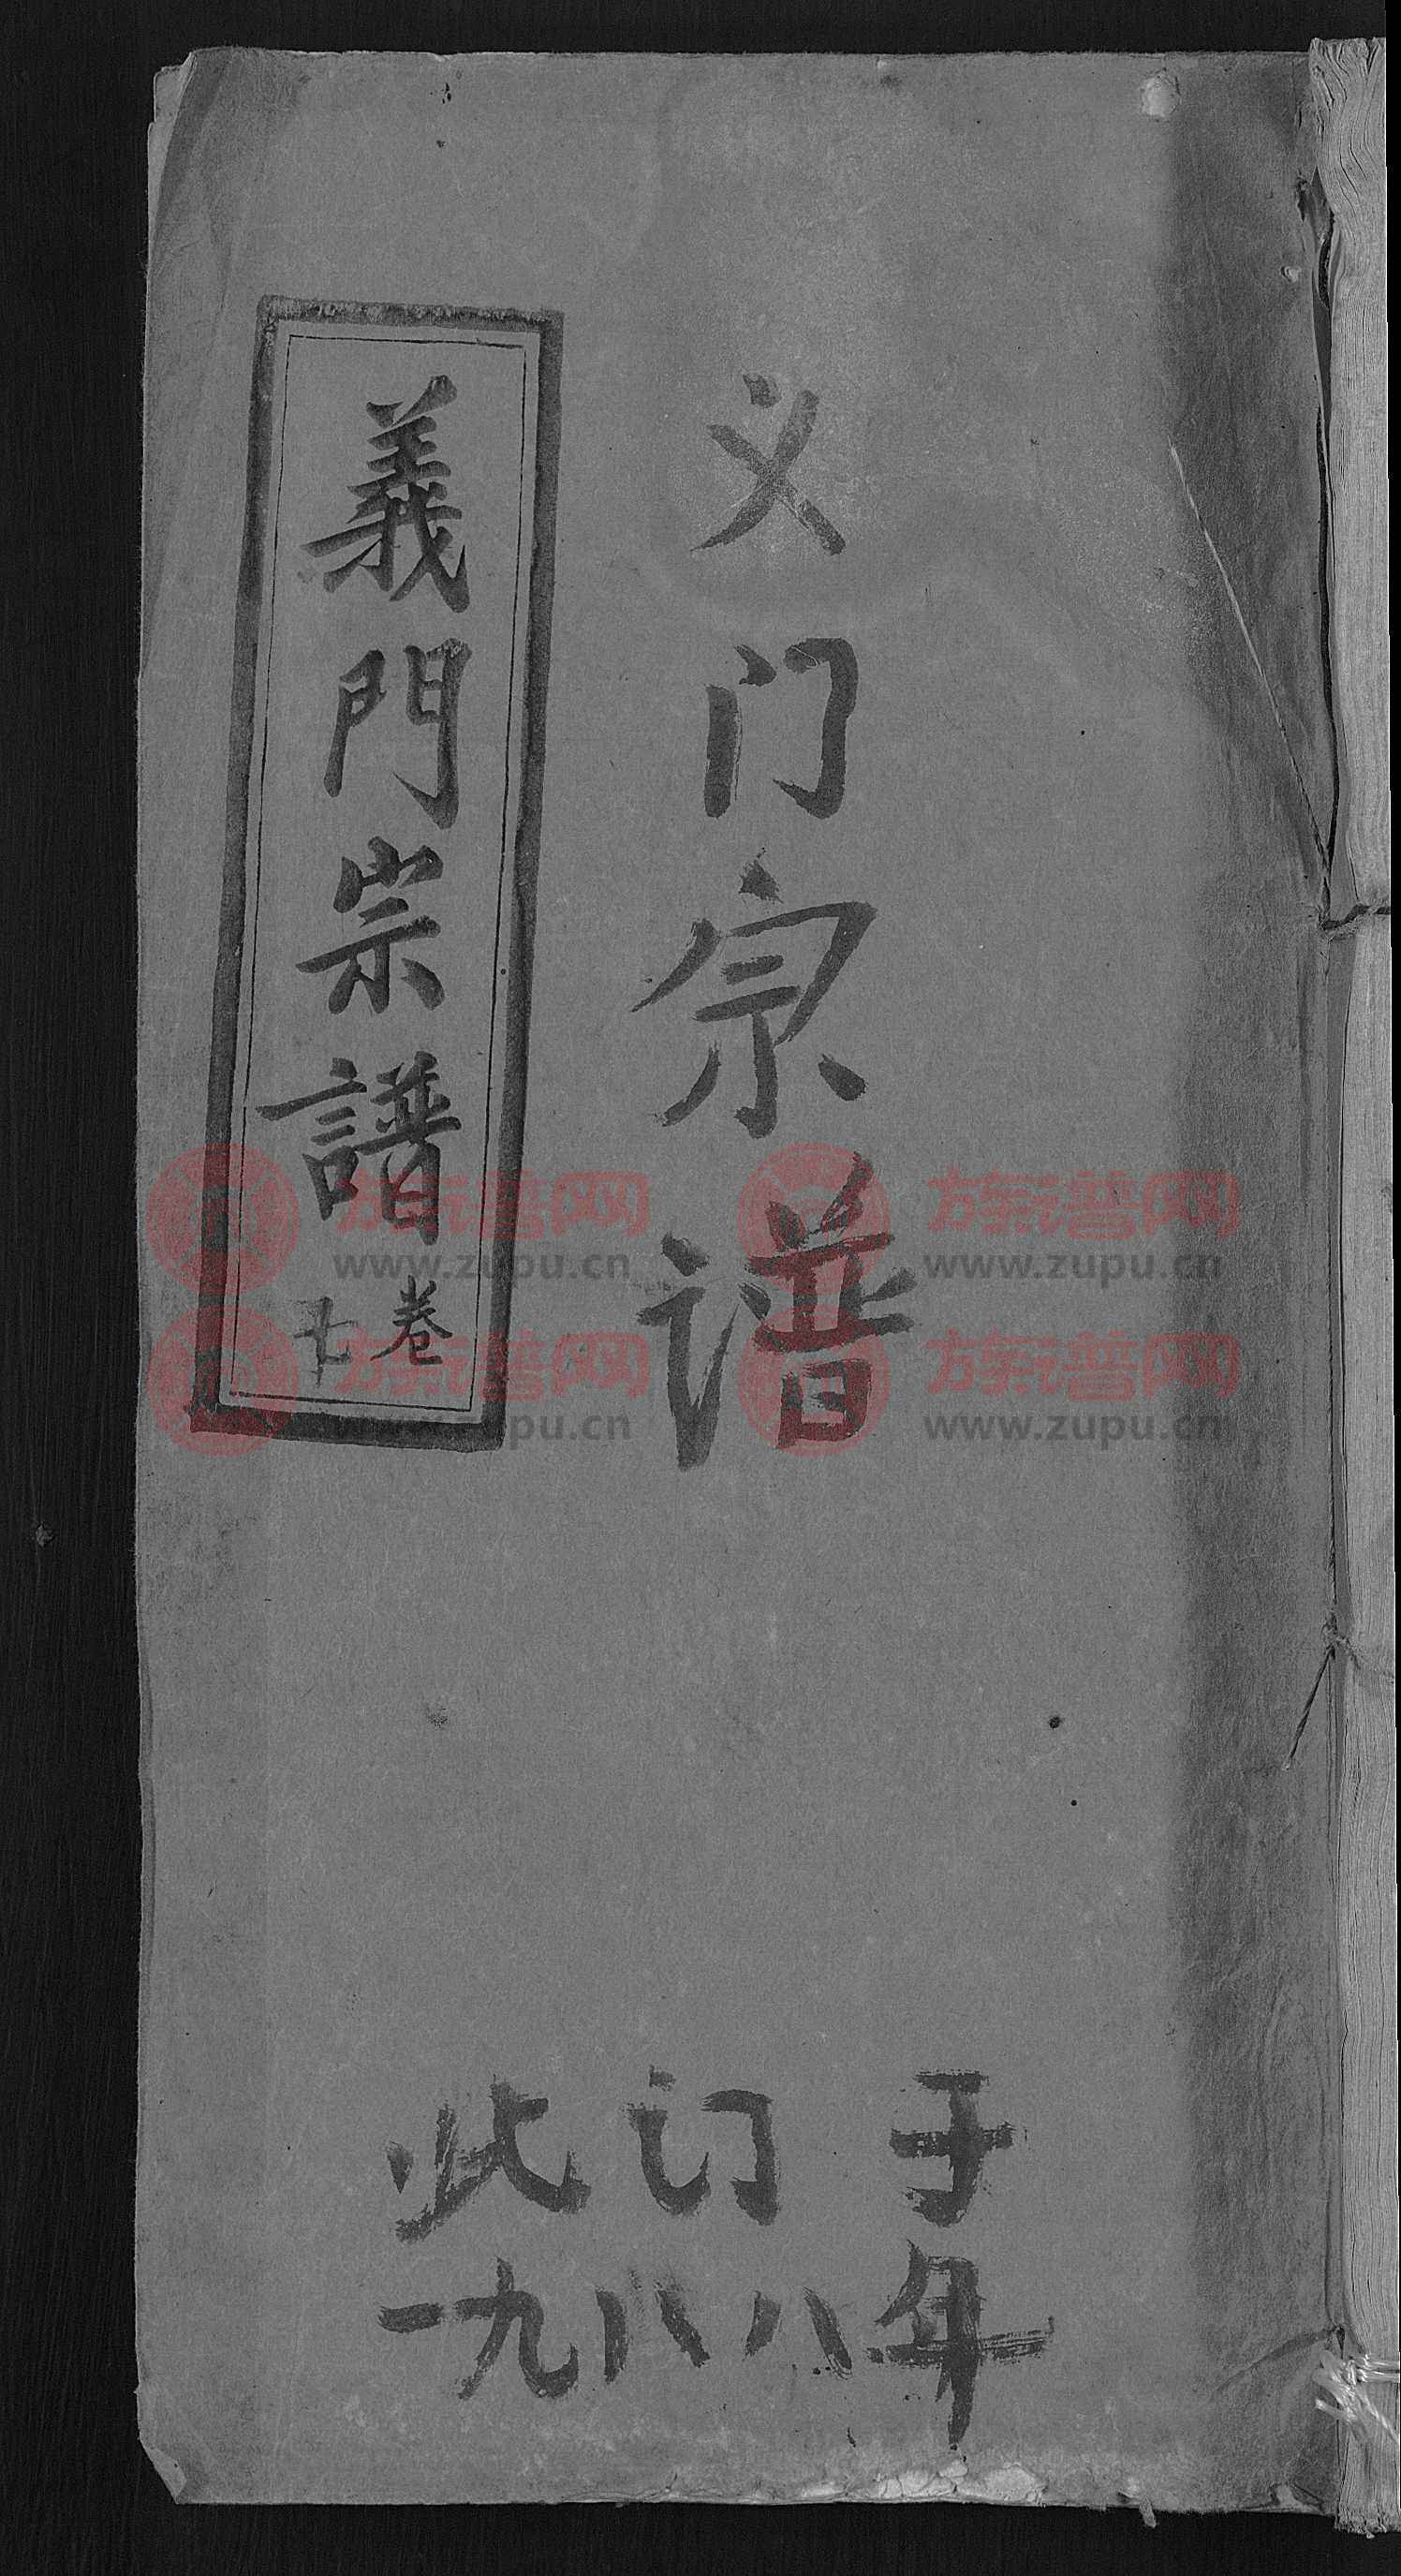 义门宗谱
義門宗譜
卷
七
此订于
一九八八年
族谱网
www.zupu.cn
族谱网
www.zupu.cn
族谱网
www.zupu.cn
族谱网
www.zupu.cn